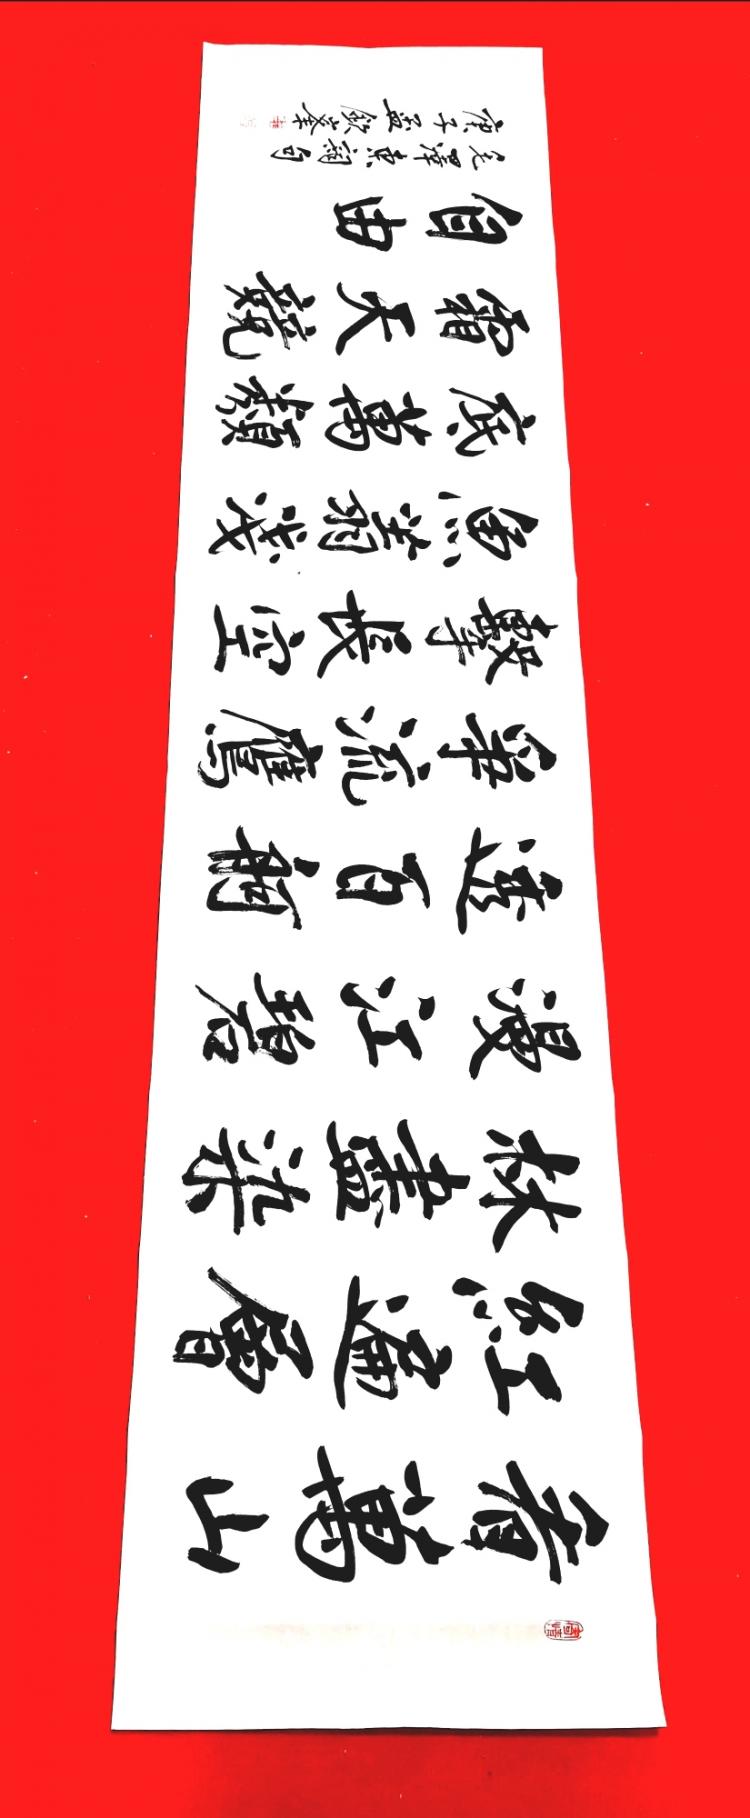 看萬山
紅遍層
林盡染
漫江碧
透百舸
争流鷹
擊長空
魚翔浅
底萬類
霜天競
自由
毛澤東詞句
庚子